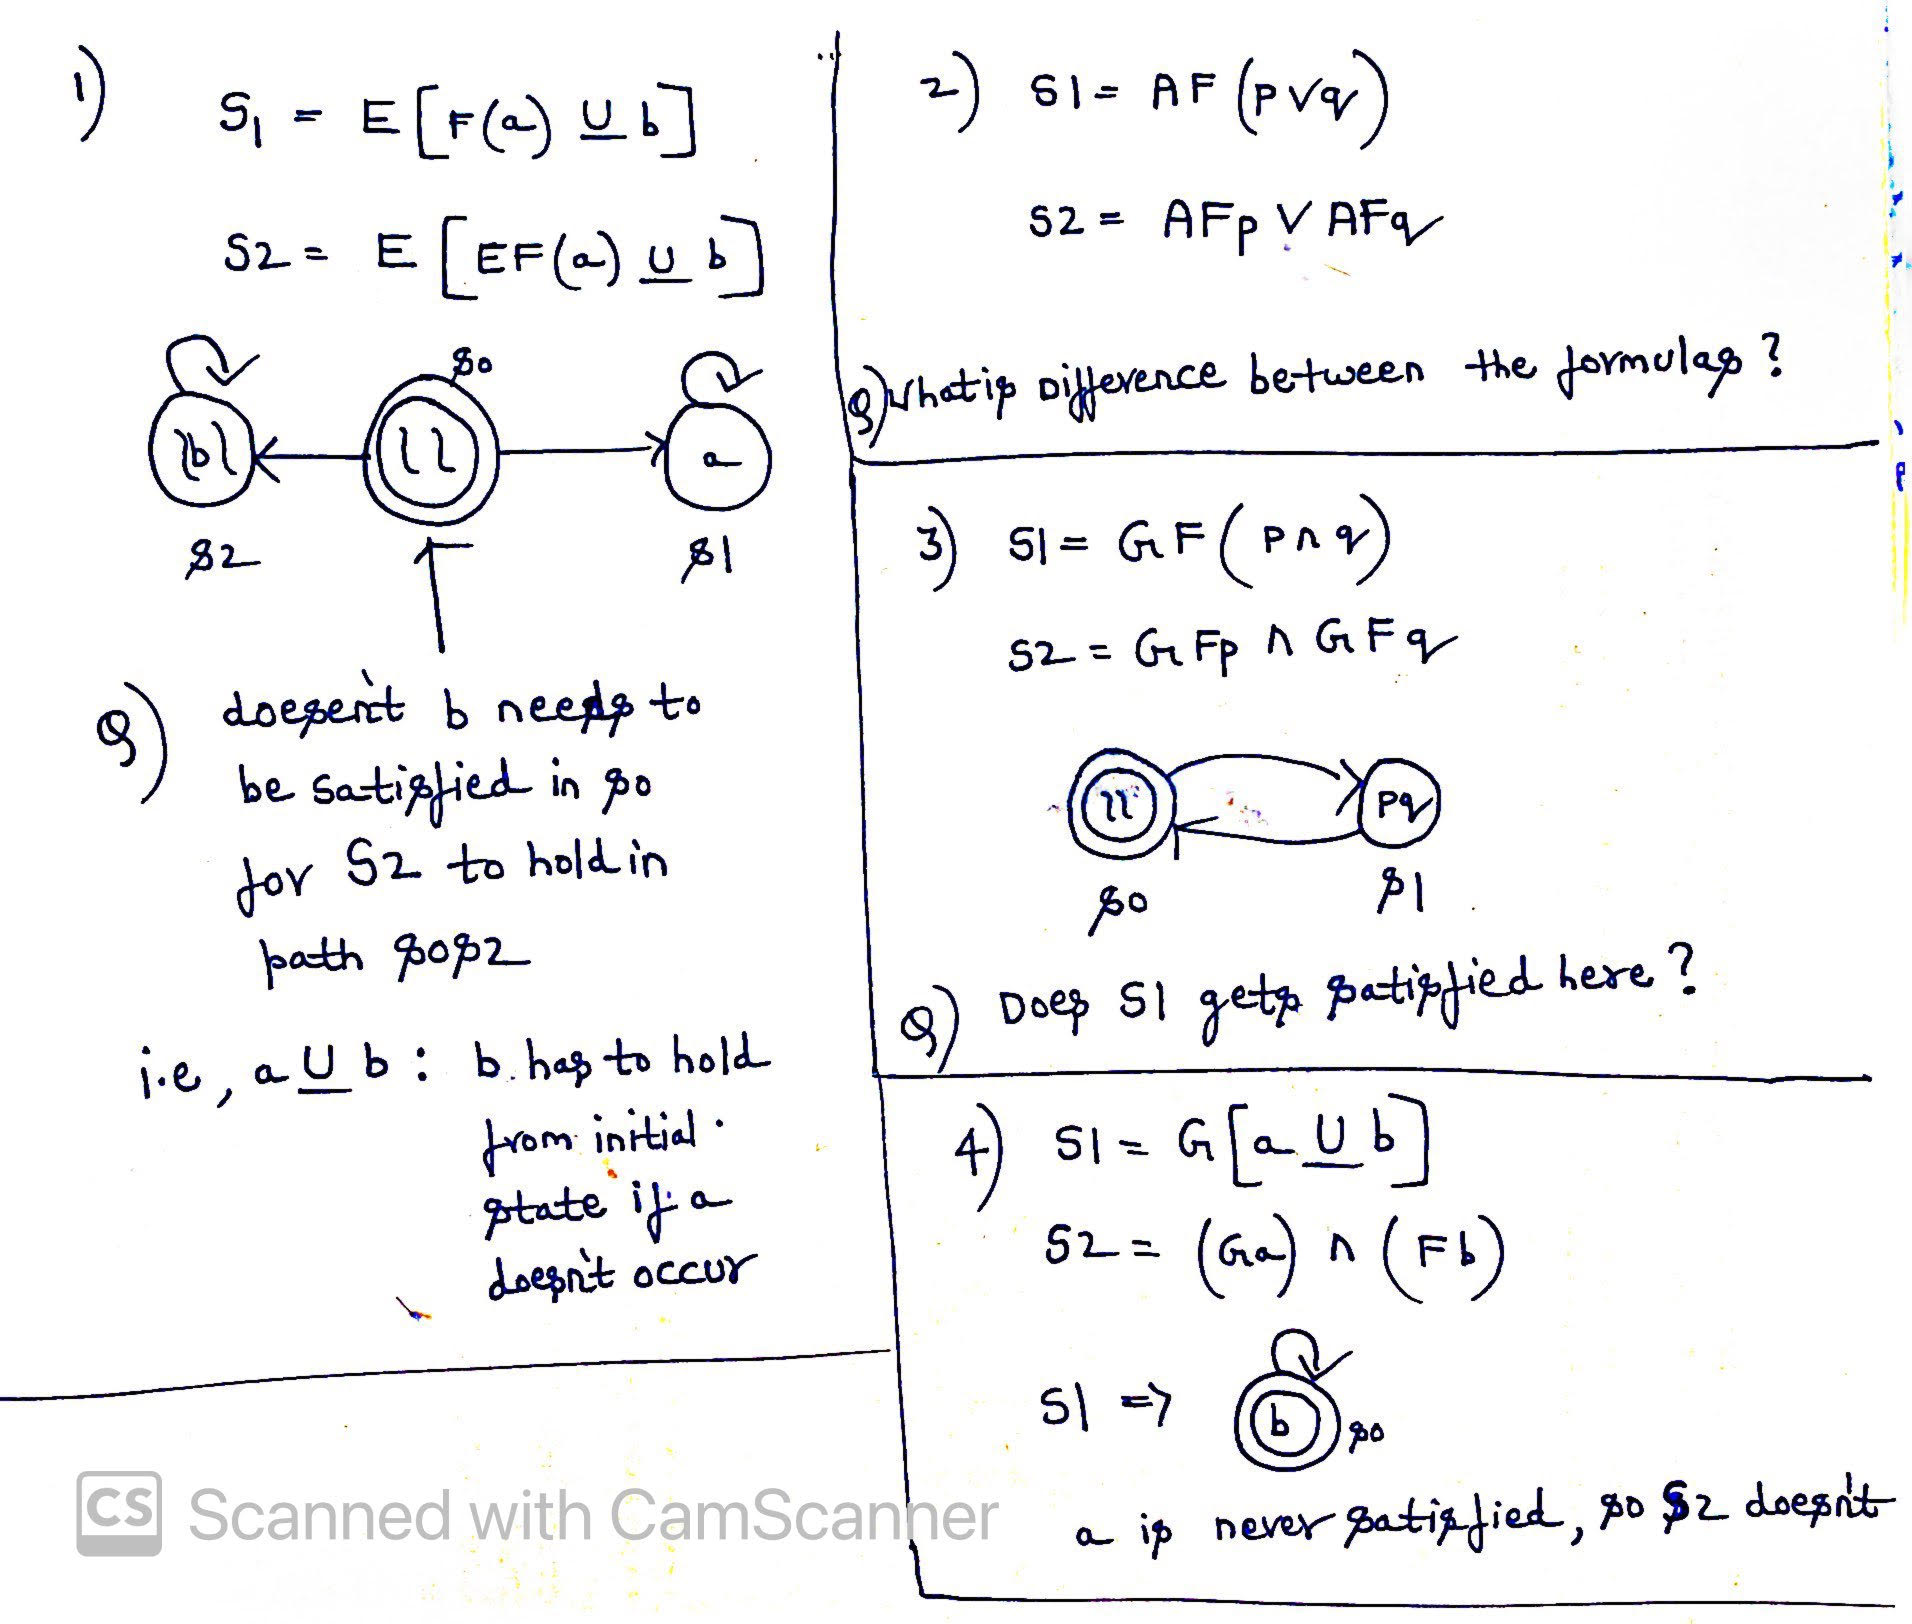 1)
S1 = E[F(a) U b]
S2 = E[EF(a) U b]
s0
{b} {} a
s2 s1
Q) doesen't b needs to
be satisfied in s0
for S2 to hold in
path s0s2
i.e, a U b : b has to hold
from initial
state if a
doesn't occur
2) S1 = AF (p∨q)
S2 = AFp ∨ AFq
Q) What is Difference between the formulas?
3) S1 = GF(p∧q)
S2 = GFp ∧ GFq
{} pq
s0 s1
Q) Does S1 gets satisfied here?
4) S1 = G[a U b]
S2 = (Ga) ∧ (Fb)
S1 => b s0
a is never satisfied, so S2 doesn't
CS Scanned with CamScanner